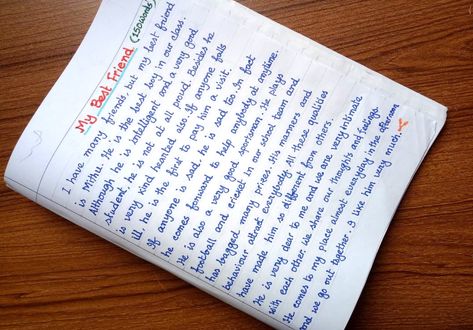 My Best Friend (150words)
I have many friends but my best friend
is Mithu. He is the best boy in our class.
Although he is intelligent and a very good
student, he is not at all proud. Besides he
is very kind hearted also. If anyone falls
ill he is the first to pay him a visit.
If anyone is sad, he is sad too. In fact
he comes forward to help anybody at anytime.
He is also a very good sportsman. He plays
football and cricket in our school team and
has bagged many prizes. His manners and
behaviour attract everybody. All these qualities
have made him so different from others.
He is very dear to me and we are very intimate
with each other. We share our thoughts and feelings.
He comes to my place almost everyday in the afternoon
and we go out together. I like him very much.